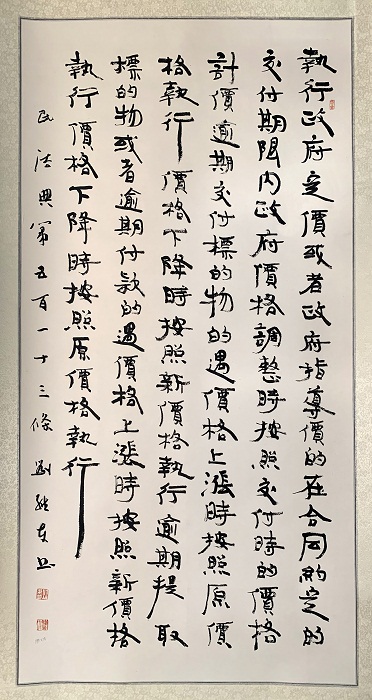 執行政府定價或者政府指導價的在合同約定的
交付期限內政府價格調整時按照交付時的價格
計價逾期交付標的物的遇價格上漲時按照原價
格執行價格下降時按照新價格執行逾期提取
標的物或者逾期付款的遇價格上漲時按照新價格
執行價格下降時按照原價格執行
民法典第五百一十三條 劉